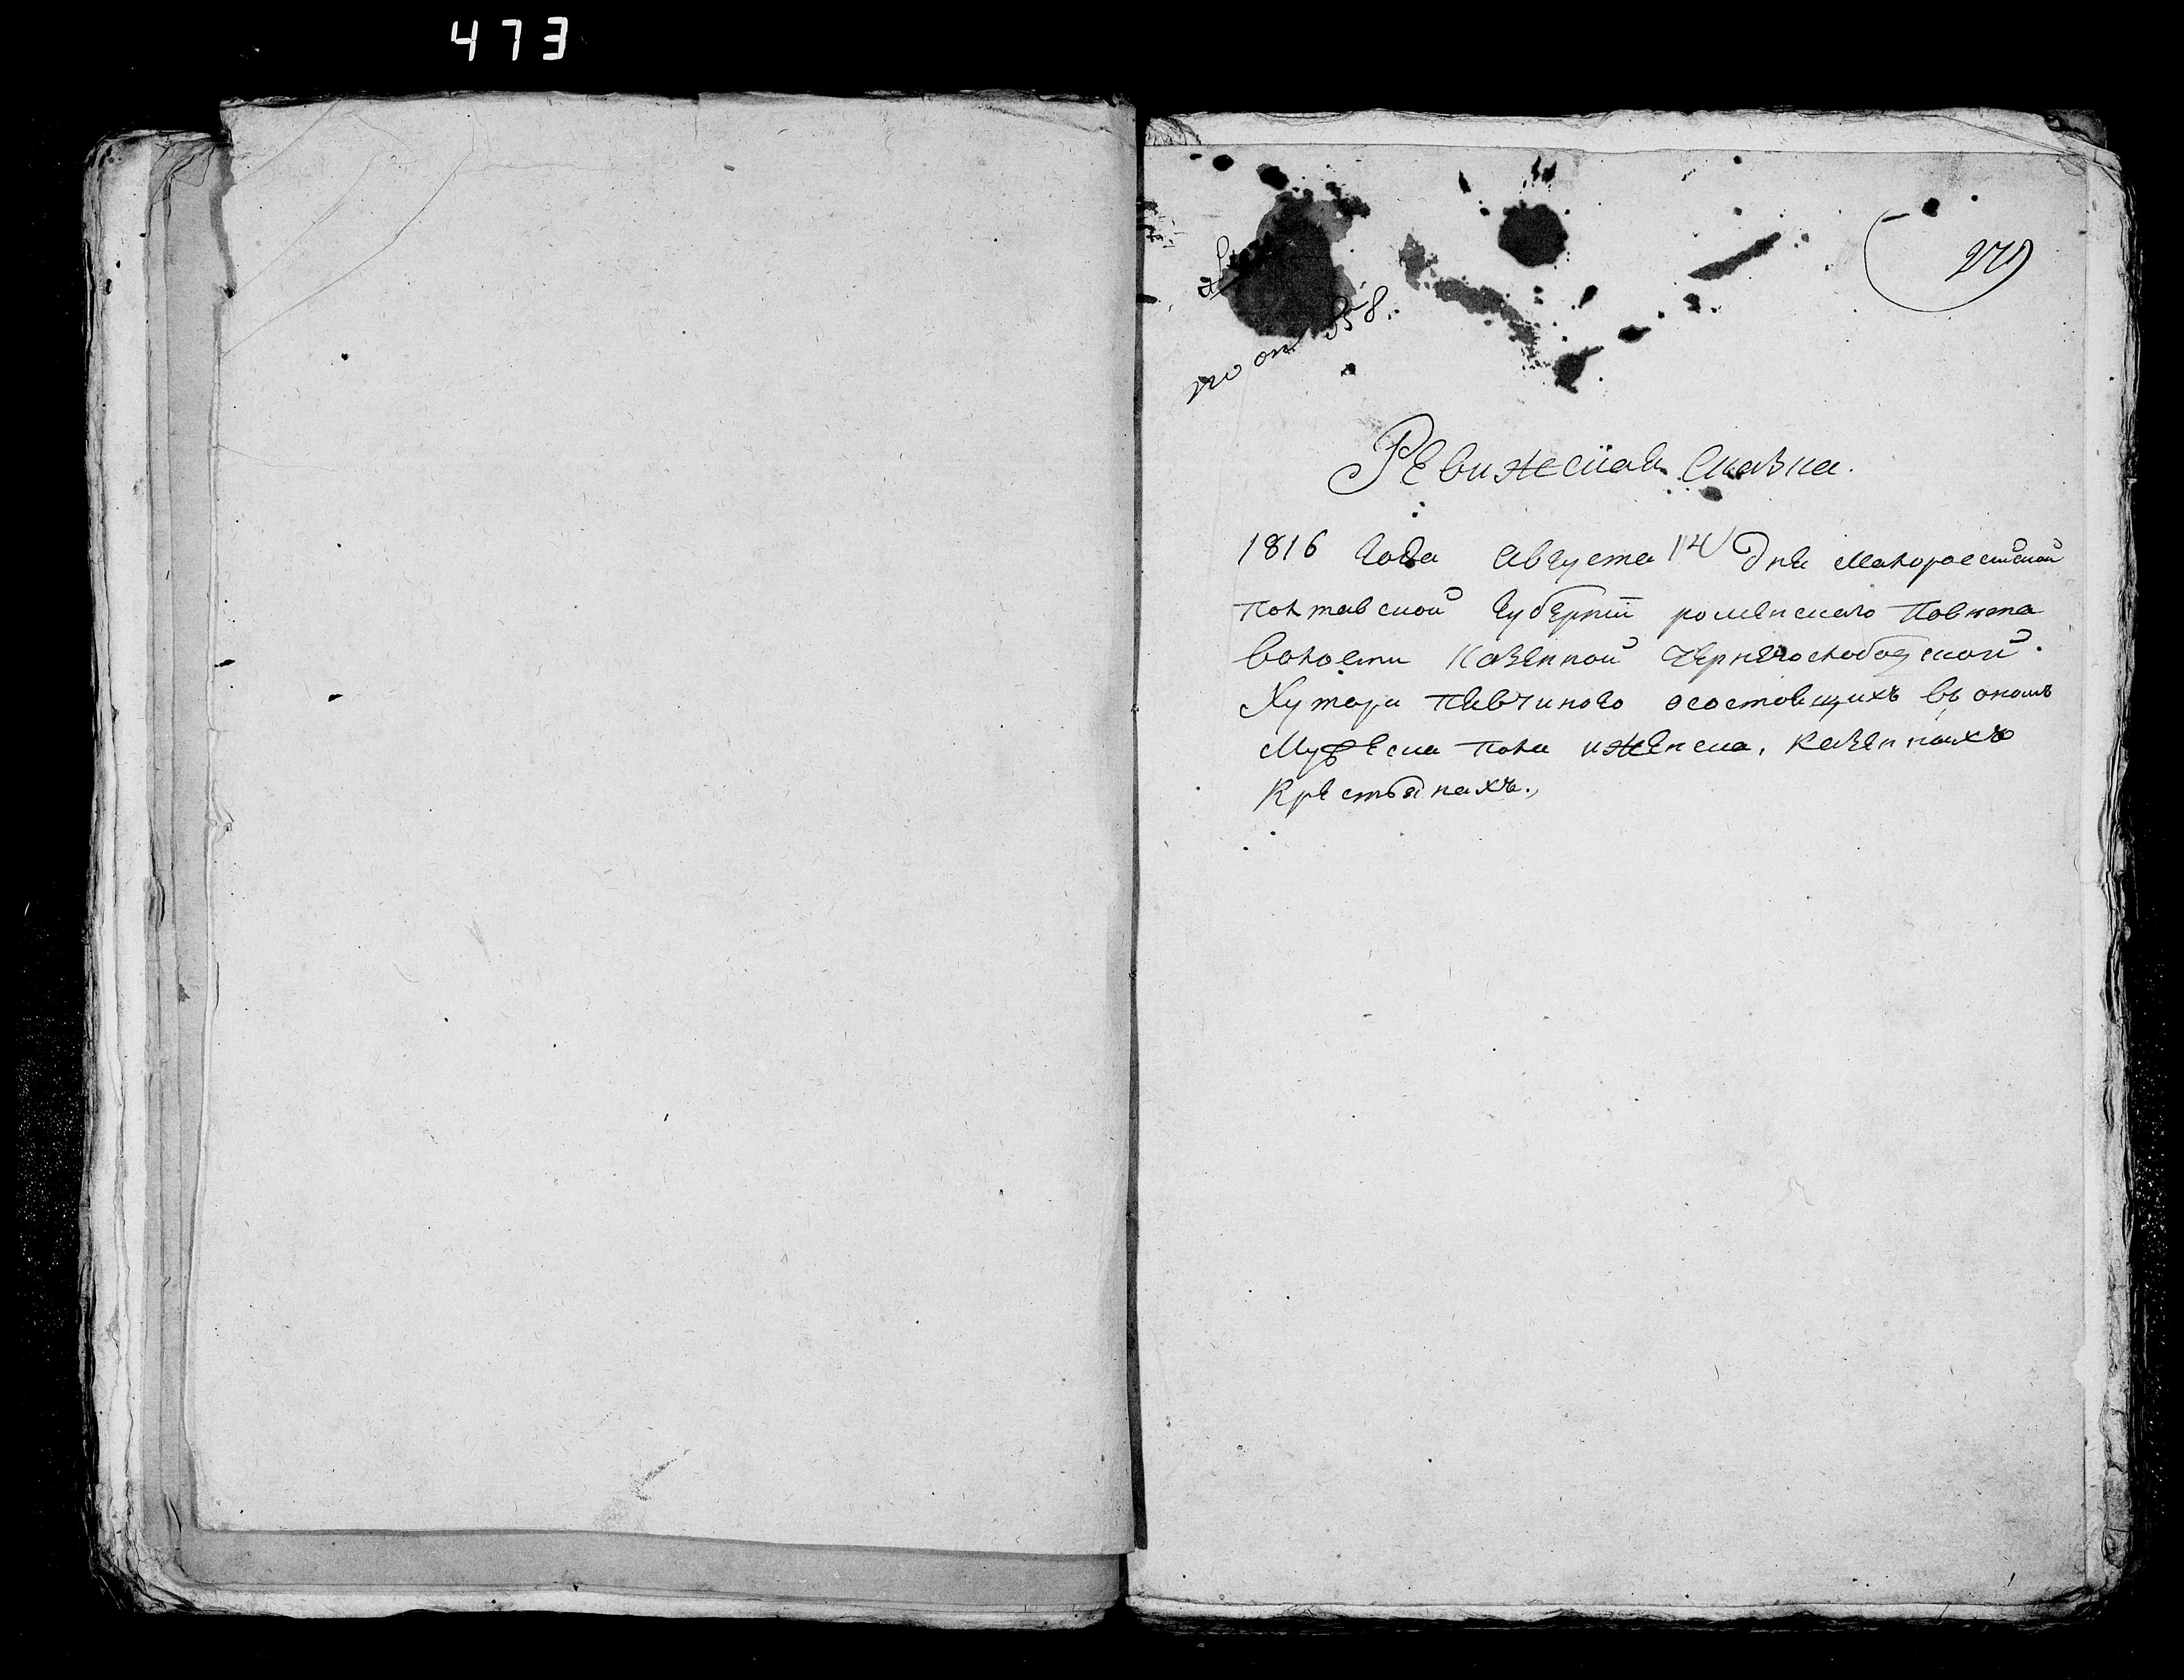 473
по оп. 358.
Ревижская Сказка.
1816 Года Августа 14 Дня Малоросстской
полтавской Губернїи роменского Повета
Волости Казенной Чернечослободской.
Хутора Певчиного осостоящихъ въ ономъ
Мужеска пола иженска, казенныхъ
Крестьянахъ.,